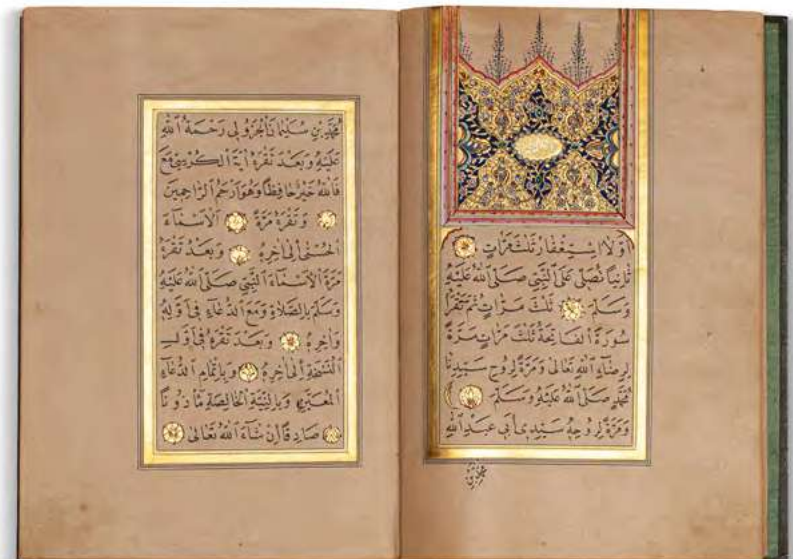 أَوَّلاً اِسْتِغْفَارُ ثَلٰثَ مَرَّاتٍ
ثَانِياً تُصَلِّى عَلَى النَّبِىِّ صَلَّى اللهُ عَلَيْهِ
وَسَلَّمَ ثَلٰثَ مَرَّاتٍ ثُمَّ تَقْرَأُ
سُورَةَ الْفَاتِحَةِ ثَلٰثَ مَرَّاتٍ مَرَّةً
لِرِضَاءِ اللهِ تَعَالٰى وَمَرَّةً لِرُوحِ سَيِّدِنَا
مُحَمَّدٍ صَلَّى اللهُ عَلَيْهِ وَسَلَّمَ
وَمَرَّةً لِرُوحِهِ سَيِّدِى أَبِى عَبْدِ اللهِ
مُحَمَّدِ بْنِ سُلَيْمَانَ الْجُزُولِى رَحْمَةُ اللهِ
عَلَيْهِ وَبَعْدَ تَقْرَهُ اٰيَةَ الْكُرْسِىِّ مَعَ
فَاللهُ خَيْرٌ حَافِظاً وَهُوَ اَرْحَمُ الرَّاحِمِينَ
وَتَقْرَهُ مَرَّةً الْاَسْمَاءَ
الْحُسْنٰى اِلٰى اٰخِرِهِ وَبَعْدُ تَقْرَهُ
مَرَّةً الْاَسْمَاءَ النَّبِىِّ صَلَّى اللهُ عَلَيْهِ
وَسَلَّمَ بِالصَّلَاةِ وَمَعَ الدُّعَاءِ فِى اَوَّلِهِ
وَاٰخِرِهِ وَبَعْدَ تَقْرَهُ فِى اَوَّلِ
النُّسْخَةِ اِلٰى اٰخِرِهِ وَبِاِتْمَامِ الدُّعَاءِ
وَبِالنِّيَّةِ الْخَالِصَةِ مَأْذُوناً
صَادِقاً اِنْ شَاءَ اللهُ تَعَالٰى